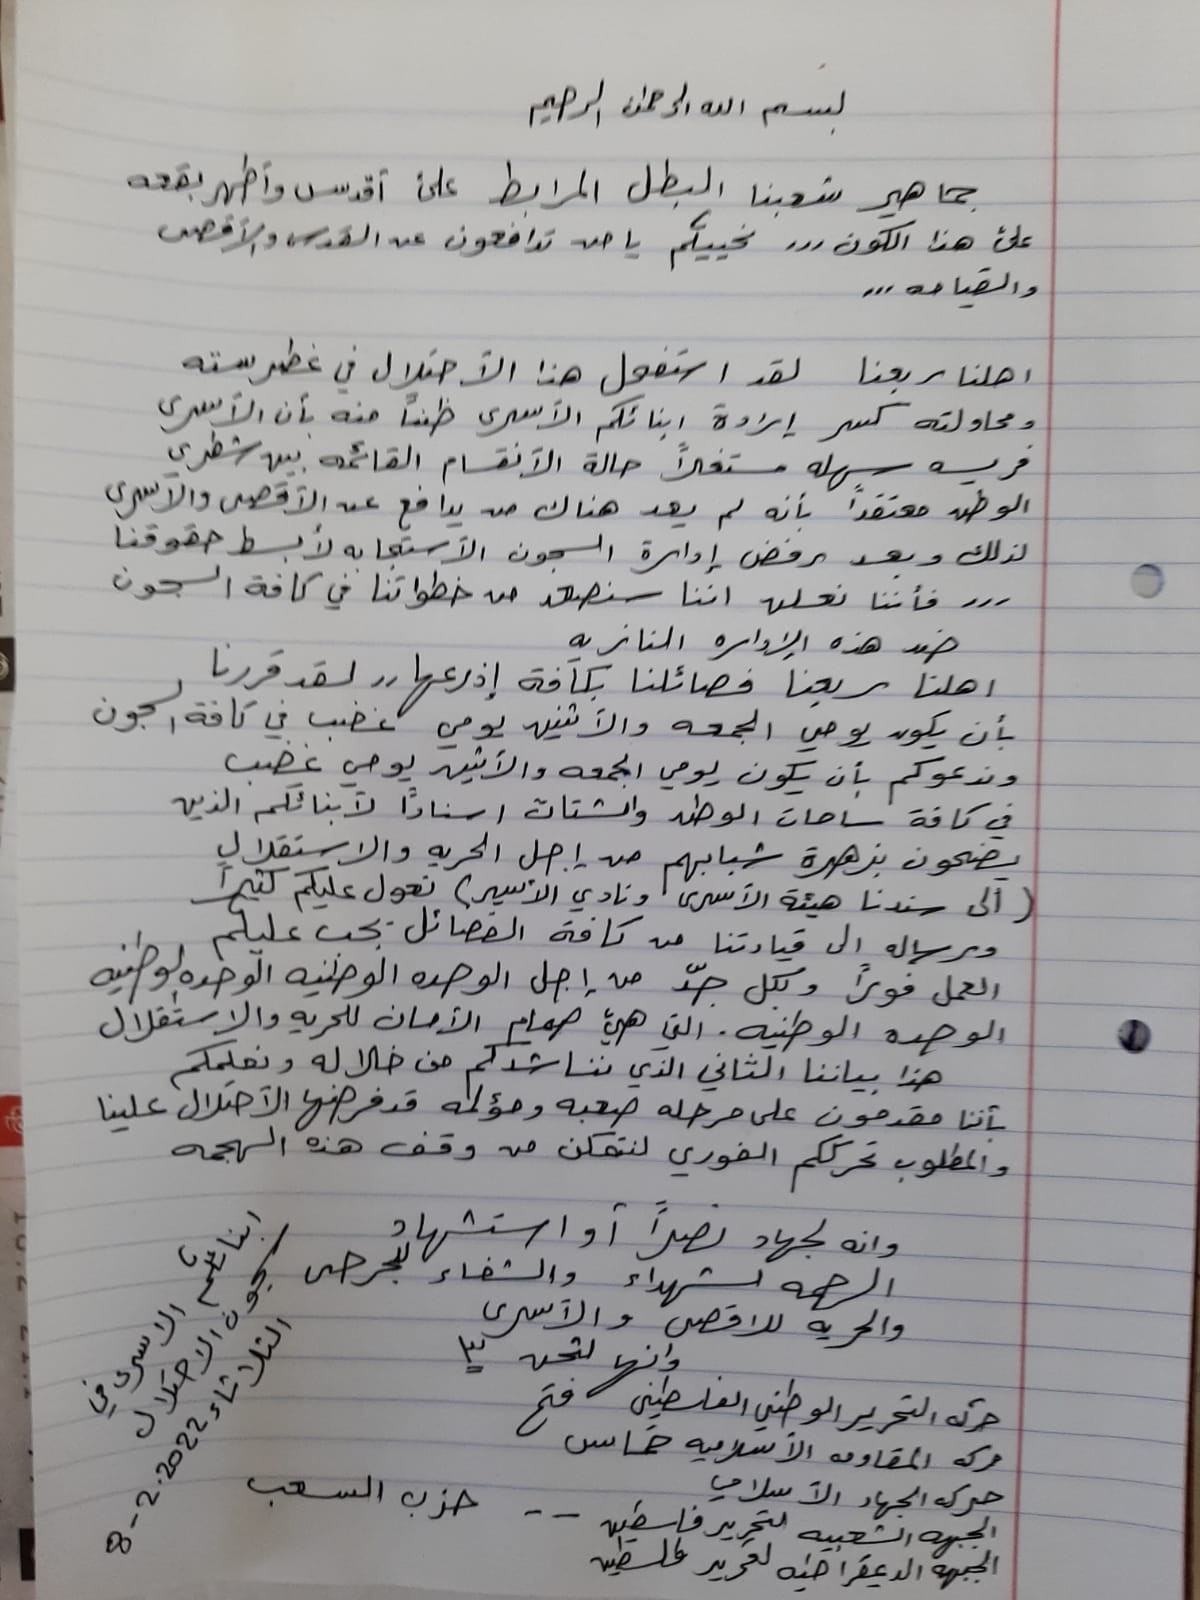 بسم الله الرحمن الرحيم
جماهير شعبنا البطل المرابط على أقدس وأطهر بقعه
على هذا الكون ... نحييكم يا من تدافعون عن القدس والأقصى
والقيامه ...
اهلنا ربعنا لقد استفحل هذا الأحتلال في غطرسته
ومحاولته كسر إرادة ابنائكم الأسرى ظنناً منه بأن الأسرى
فريسه سهله مستغلاً حالة الأنقسام القائمه بين شطري
الوطن معتقداً بأنه لم يعد هناك من يدافع عن الأقصى والأسرى
لذلك وبعد رفض إدارة السجون الأستجابه لأبسط حقوقنا
... فأننا نعلن اننا سنصعد من خطواتنا في كافة السجون
ضد هذه الإداره النازيه
اهلنا ربعنا فصائلنا بكافة إذرعها .. لقد قررنا
بأن يكون يومي الجمعه والأثنين يومي غضب في كافة السجون
وندعوكم بأن يكون يومي الجمعه والأثنين يومي غضب
في كافة ساحات الوطن والشتات اسناداً لأبنائكم الذين
يضحون بزهرة شبابهم من إجل الحريه والاستقلال
(ألى سندنا هيئة الأسرى ونادي الأسير) نعول عليكم كثيراً
ورساله الى قيادتنا من كافة الفصائل يجب عليكم
العمل فوراً وبكل جدّ من إجل الوحده الوطنيه الوحده الوطنيه
الوحده الوطنيه. التي هيَ صمام الأمان للحريه والاستقلال
هذا بياننا الثاني الذي نناشدكم من خلاله ونعلمكم
بأننا مقدمون على مرحله صعبه ومؤلمه قد فرضها الأحتلال علينا
والمطلوب تحرككم الفوري لنتمكن من وقف هذه الهجمه
وانه لجهاد نصراً أو استشهاد
الرحمه لشهداء والشفاء للجرحى
والحريه للاقصى والأسرى
وانها لنحن
حركه التحرير الوطني الفلسطيني فتح
حركه المقاومه الأسلاميه حماس
حركه الجهاد الأسلامي
الجبهه الشعبيه لتحرير فلسطين -- حزب الشعب
الجبهه الديمقراطيه لتحرير فلسطين
ابنائكم الاسرى في
سجون الاحتلال
الثلاثاء 8-2-2022